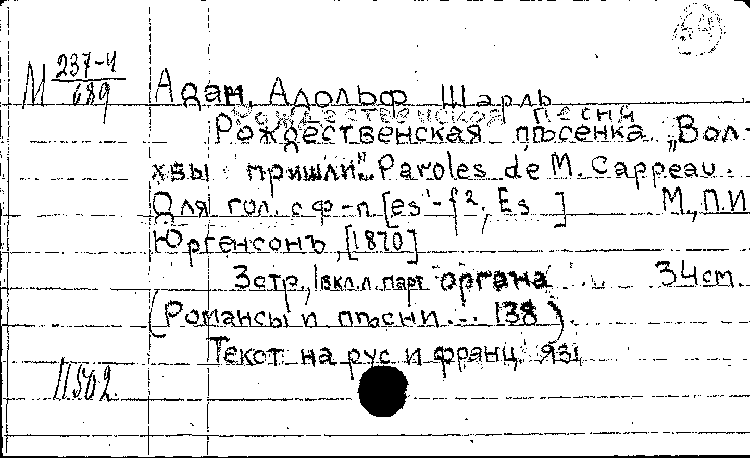 М 237-4/689
Адан, Адольф Шарль
Рождественская песня
Рождественская пѣсенка „Вол-
хвы пришли". Paroles de M. Cappeau.
Для гол. с ф-п [es¹-f², Es ] М., П.И
Юргенсонъ, [1870]
3 стр., 1 вкл. л. парт органа 34 см.
(Романсы и пѣсни... 138).
Текст на рус и франц. яз
11502.